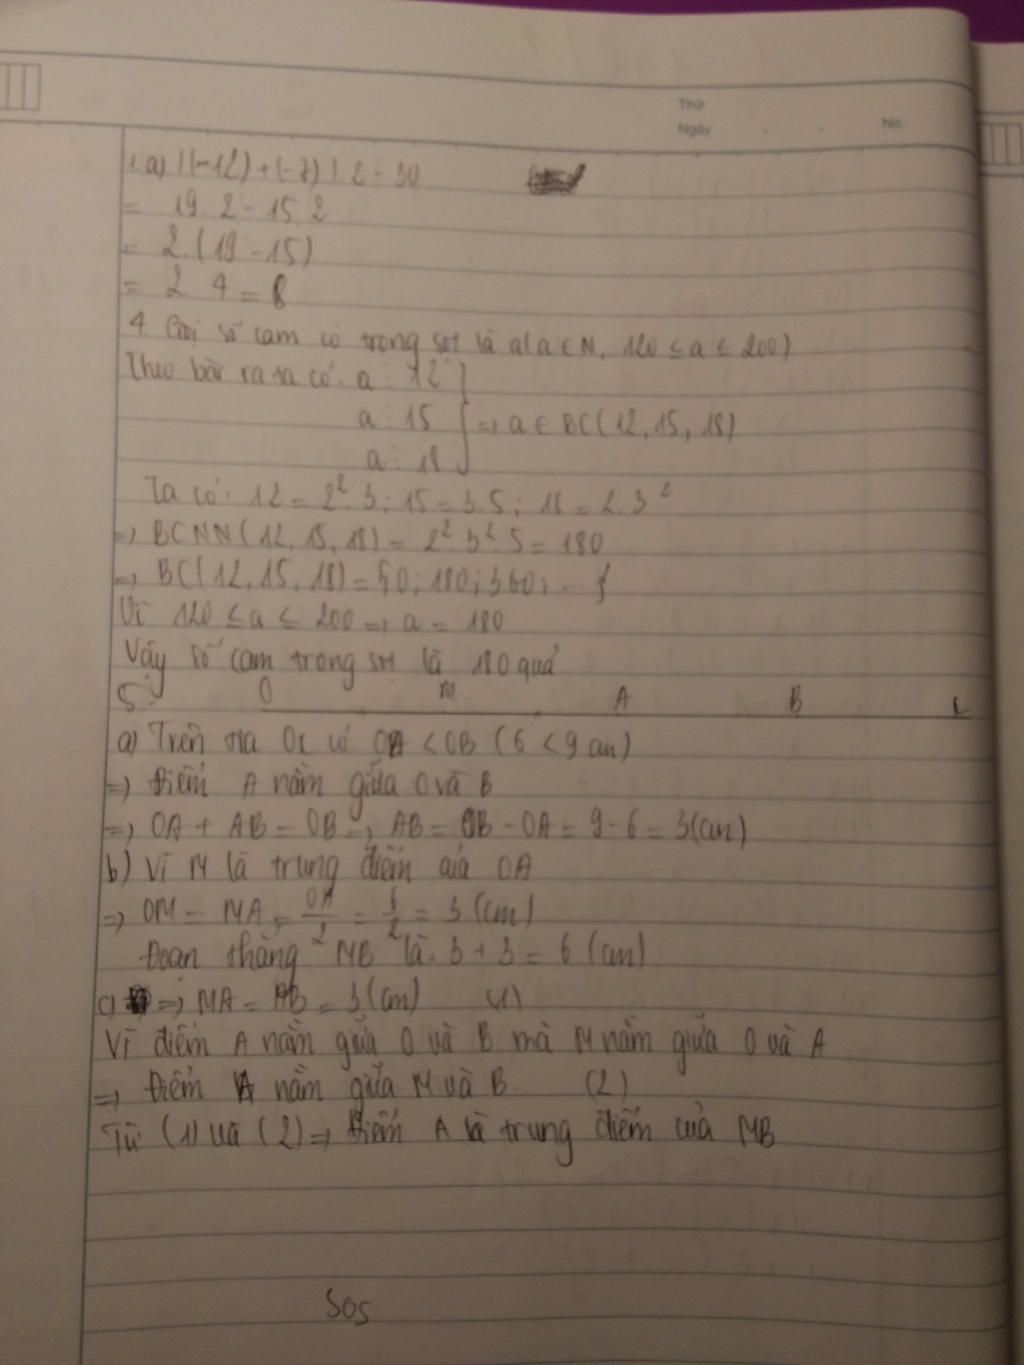 Thứ
Ngày . . No.
1. a) |(-12) + (-7)| . 2 - 30
= 19. 2 - 15. 2
= 2. (19 - 15)
= 2 . 4 = 8
4. Gọi số cam có trong sọt là a (a ∈ N, 120 ≤ a ≤ 200)
Theo bài ra ta có: a ⋮ 12 }
a ⋮ 15 } => a ∈ BC(12, 15, 18)
a ⋮ 18 }
Ta có: 12 = 2². 3; 15 = 3.5; 18 = 2.3²
=> BCNN(12, 15, 18) = 2². 3². 5 = 180
=> BC(12, 15, 18) = {0; 180; 360; ... }
Vì 120 ≤ a ≤ 200 => a = 180
Vậy số cam trong sọt là 180 quả
5. O M A B x
a) Trên tia Ox có OA < OB (6 < 9 cm)
=> Điểm A nằm giữa O và B
=> OA + AB = OB => AB = OB - OA = 9 - 6 = 3(cm)
b) Vì M là trung điểm của OA
=> OM = MA = OA/2 = 6/2 = 3 (cm)
Đoạn thẳng MB là: 3 + 3 = 6 (cm)
c) => MA = AB = 3 (cm) (1)
Vì điểm A nằm giữa O và B mà M nằm giữa O và A
=> Điểm A nằm giữa M và B (2)
Từ (1) và (2) => Điểm A là trung điểm của MB
SOS